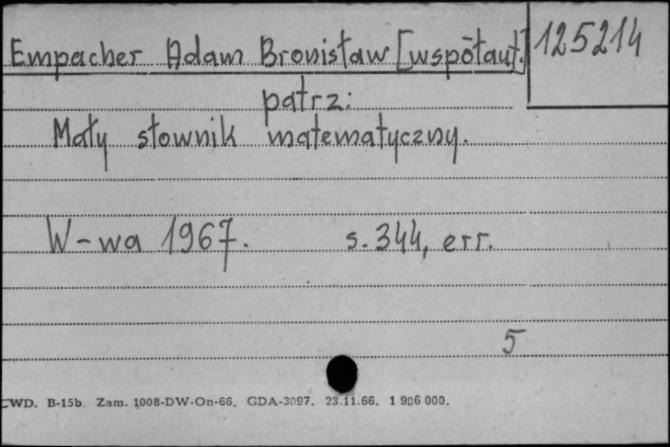 Empacher Adam Bronisław [współaut.] 125214
patrz:
Mały słownik matematyczny.
W-wa 1967. s. 344, err.
5
CWD. B-15b. Zam. 1008-DW-On-66. GDA-3097. 23.11.66. 1 906 000.